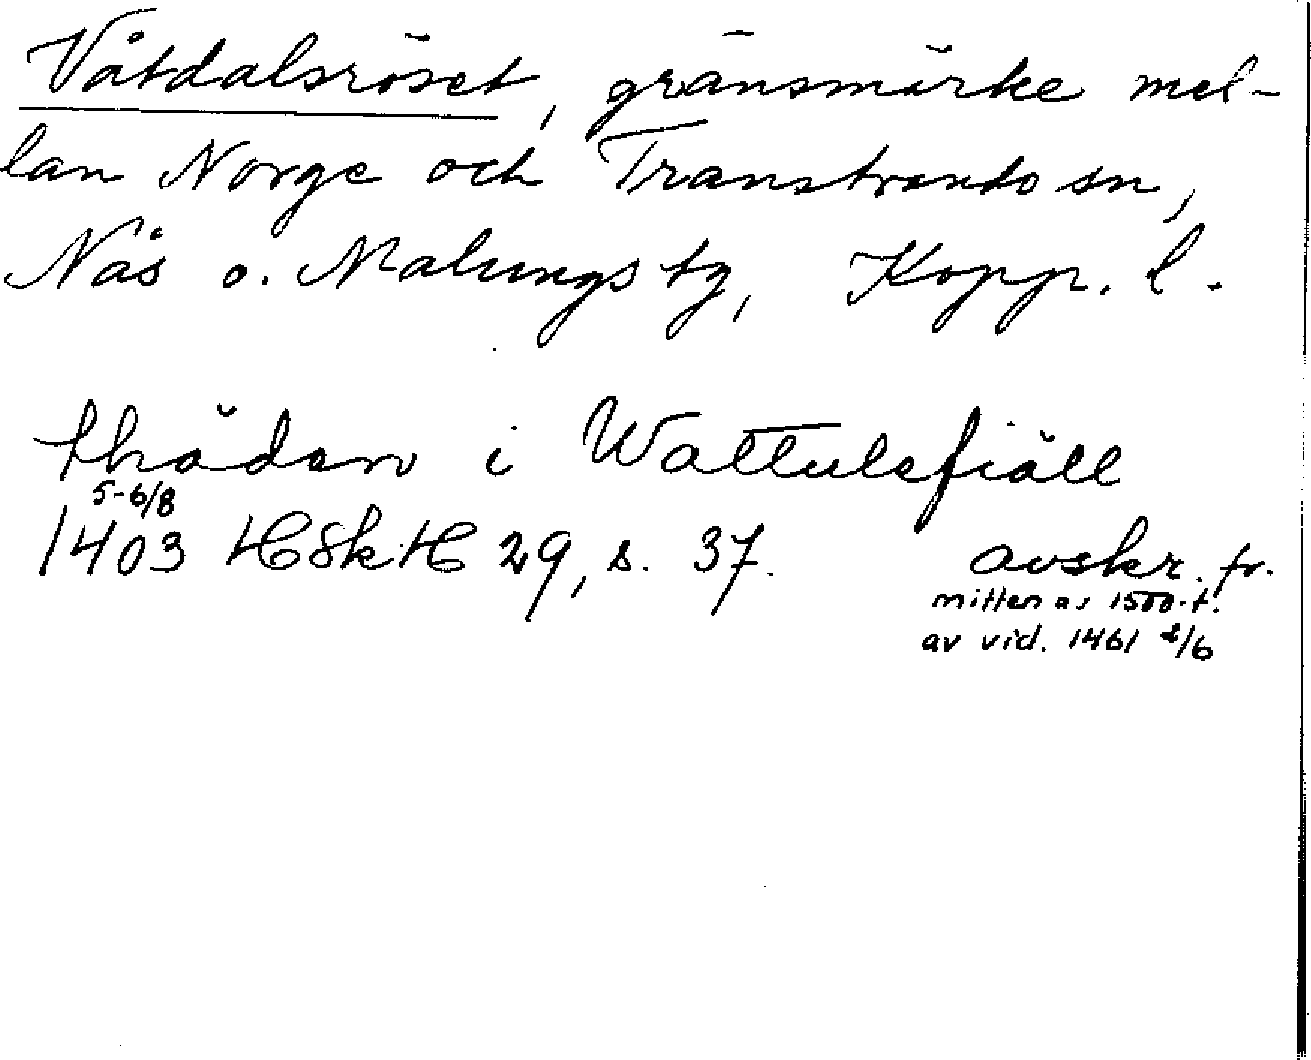 Våtdalsröset, gränsmärke mel-
lan Norge och Transtrands sn,
Nås o. Malungs tg, Kopp. l.
thädan i Wattulsfiäll
5-6/8
1403 HSkH 29, s. 37. avskr. fr.
mitten av 1500-t.
av vid. 1461 2/6